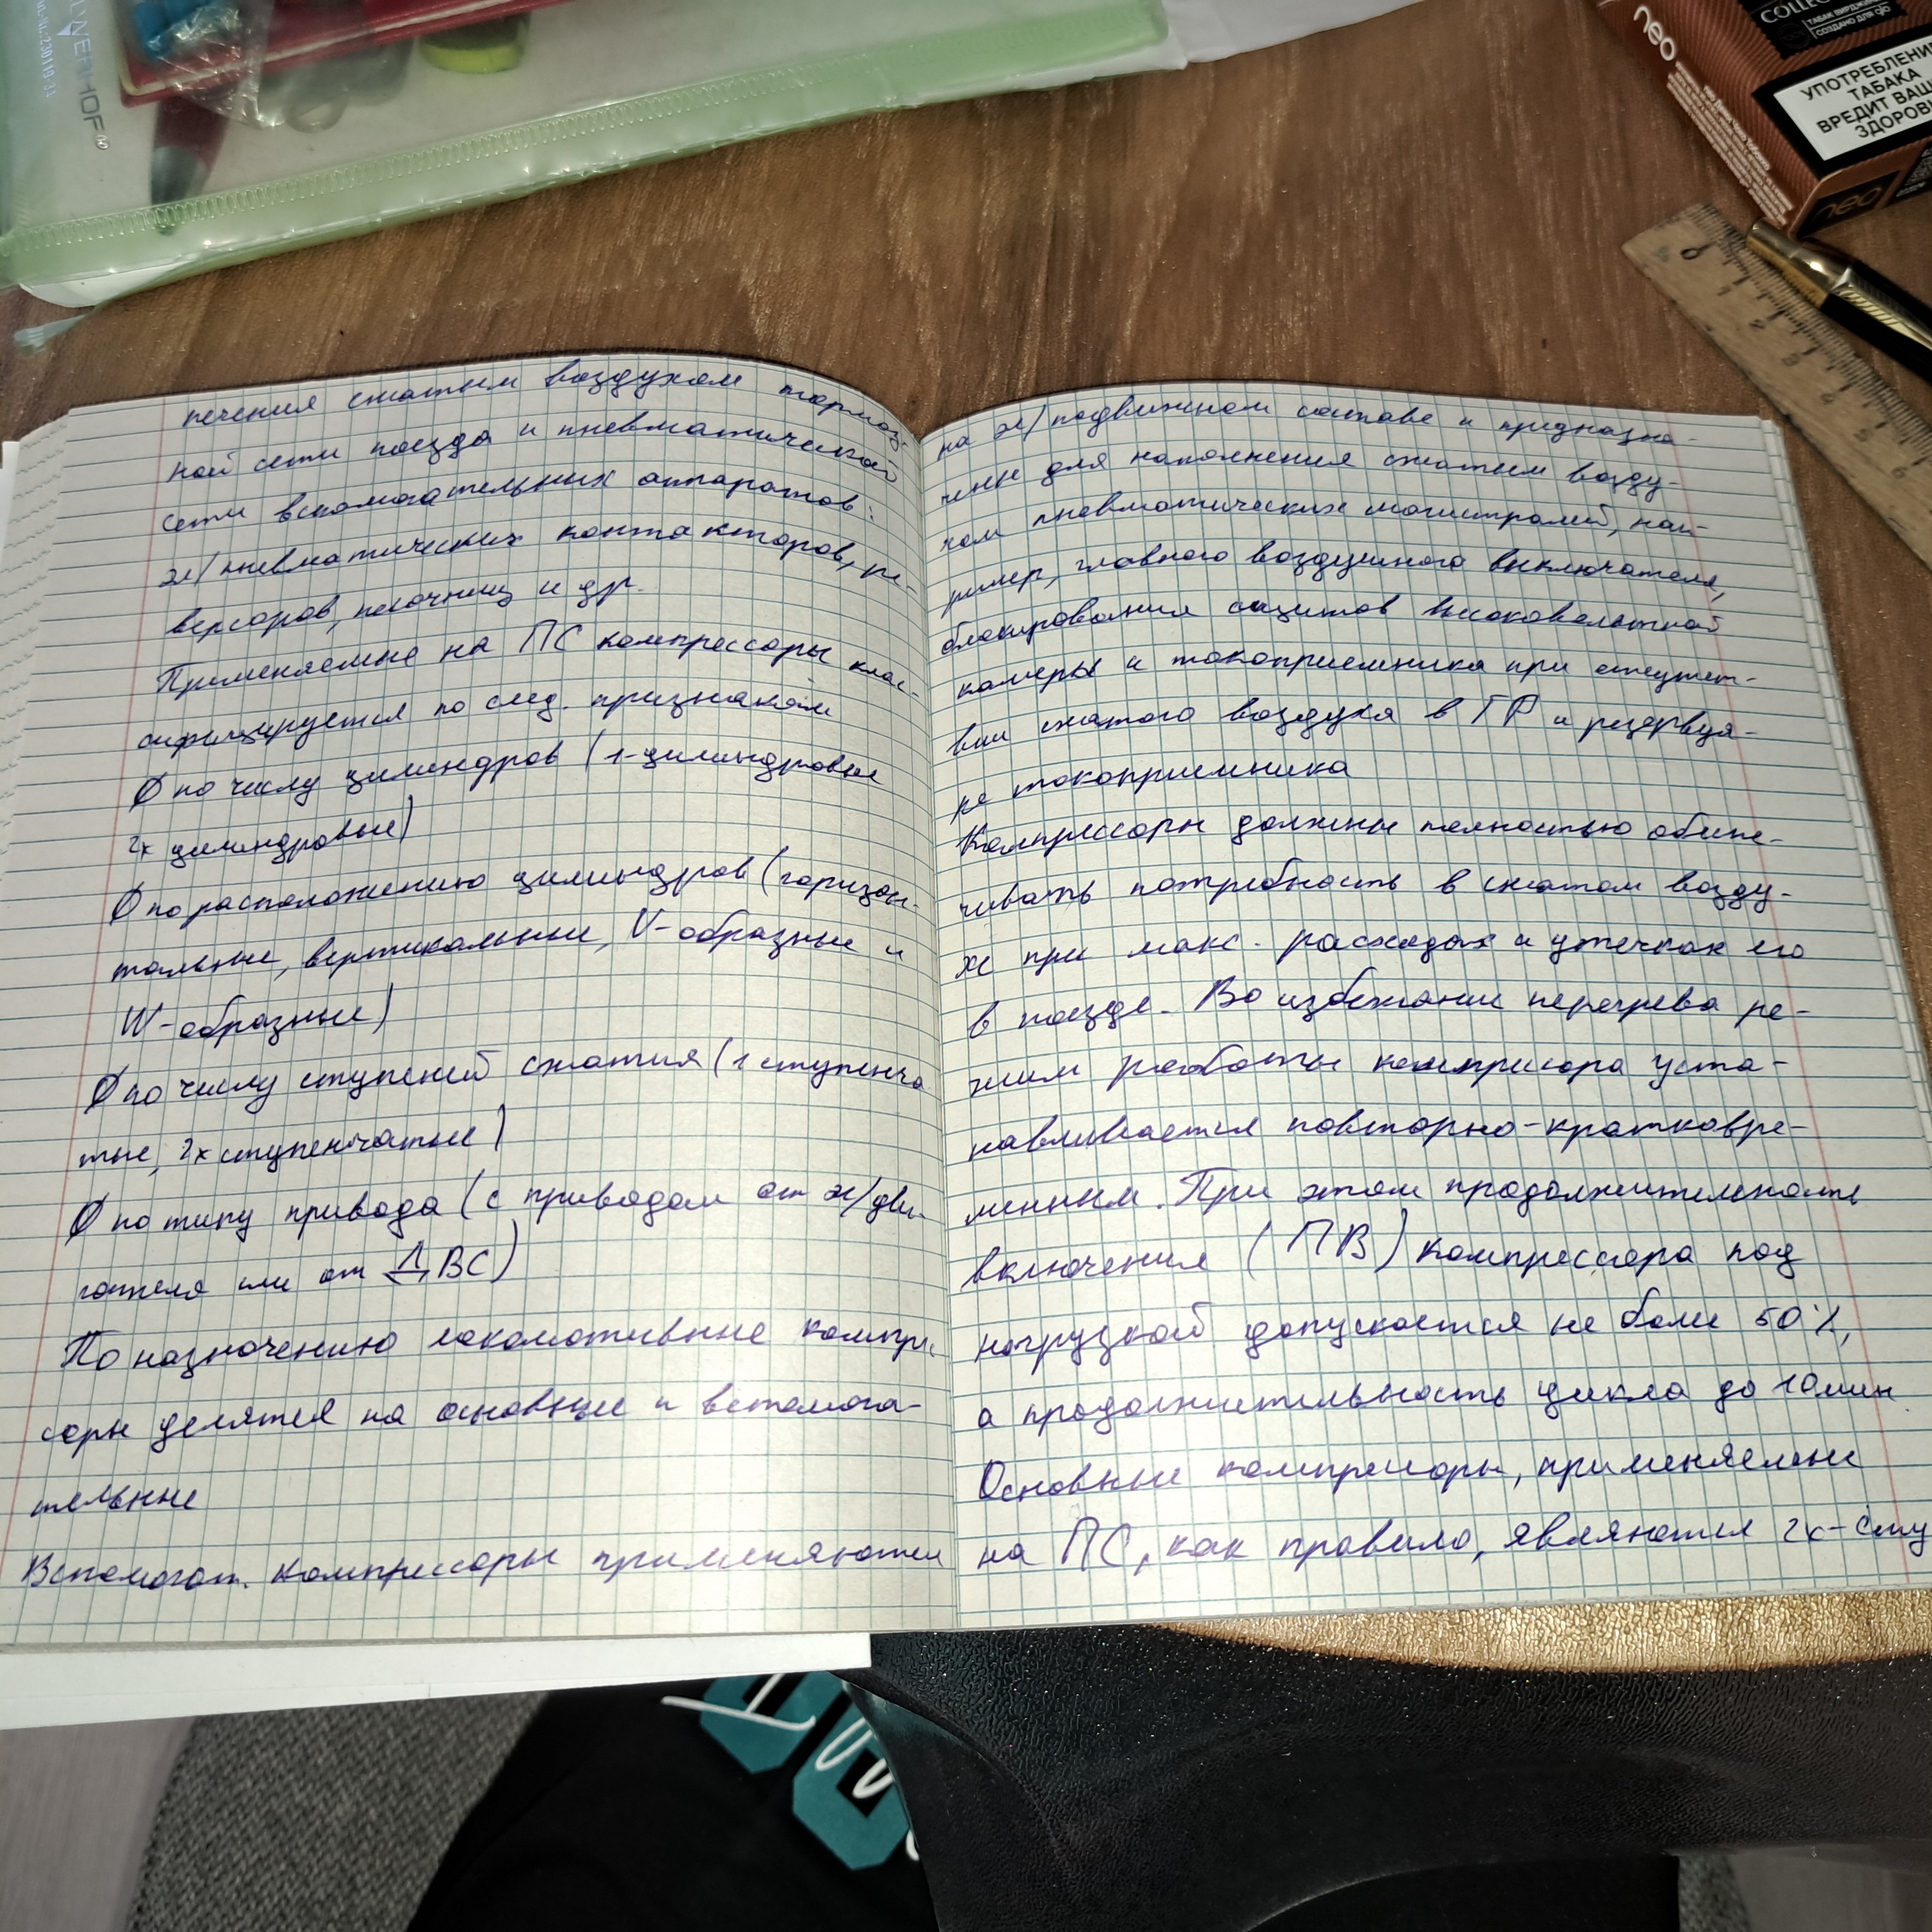 AVERHOF®
neo
COLLE
ТАБАК ВИРДЖИ
СОЗДАНО ДЛЯ glo
УПОТРЕБЛЕНИ
ТАБАКА
ВРЕДИТ ВАШ
ЗДОРОВЬ
neo
0 1 2 3 4 5
печения сжатым воздухом тормоз
ной сети поезда и пневматической
сети вспомогательных аппаратов:
эл/пневматических контакторов, ре-
версоров, песочниц и др.
Применяемые на ПС компрессоры клас-
сифицируется по след. признакам
по числу цилиндров (1-цилиндровые
2х цилиндровые)
по расположению цилиндров (горизон-
тальные, вертикальные, V-образные и
W-образные)
по числу ступеней сжатия (1 ступенча
тые, 2х ступенчатые)
по типу привода (с приводом от эл/дви-
гателя или от ДВС)
По назначению локомотивные компре
соры делятся на основные и вспомога-
тельные
Вспомогат. компрессоры применяются
на эл/подвижном составе и предназна-
чены для наполнения сжатым возду-
хом пневматических магистралей, нап-
ример, главного воздушного выключателя,
блокирования щитов высоковольтной
камеры и токоприемника при отсутст-
вии сжатого воздуха в ГР и резервуа-
ре токоприемника
Компрессоры должны полностью обеспе-
чивать потребность в сжатом возду-
хе при макс. расходах и утечках его
в поезде. Во избежание перегрева ре-
жим работы компрессора уста-
навливается повторно-кратковре-
менным. При этом продолжительность
включения (ПВ) компрессора под
нагрузкой допускается не более 50%,
а продолжительность цикла до 10 мин
Основные компрессоры, применяемые
на ПС, как правило, являются 2х-сту